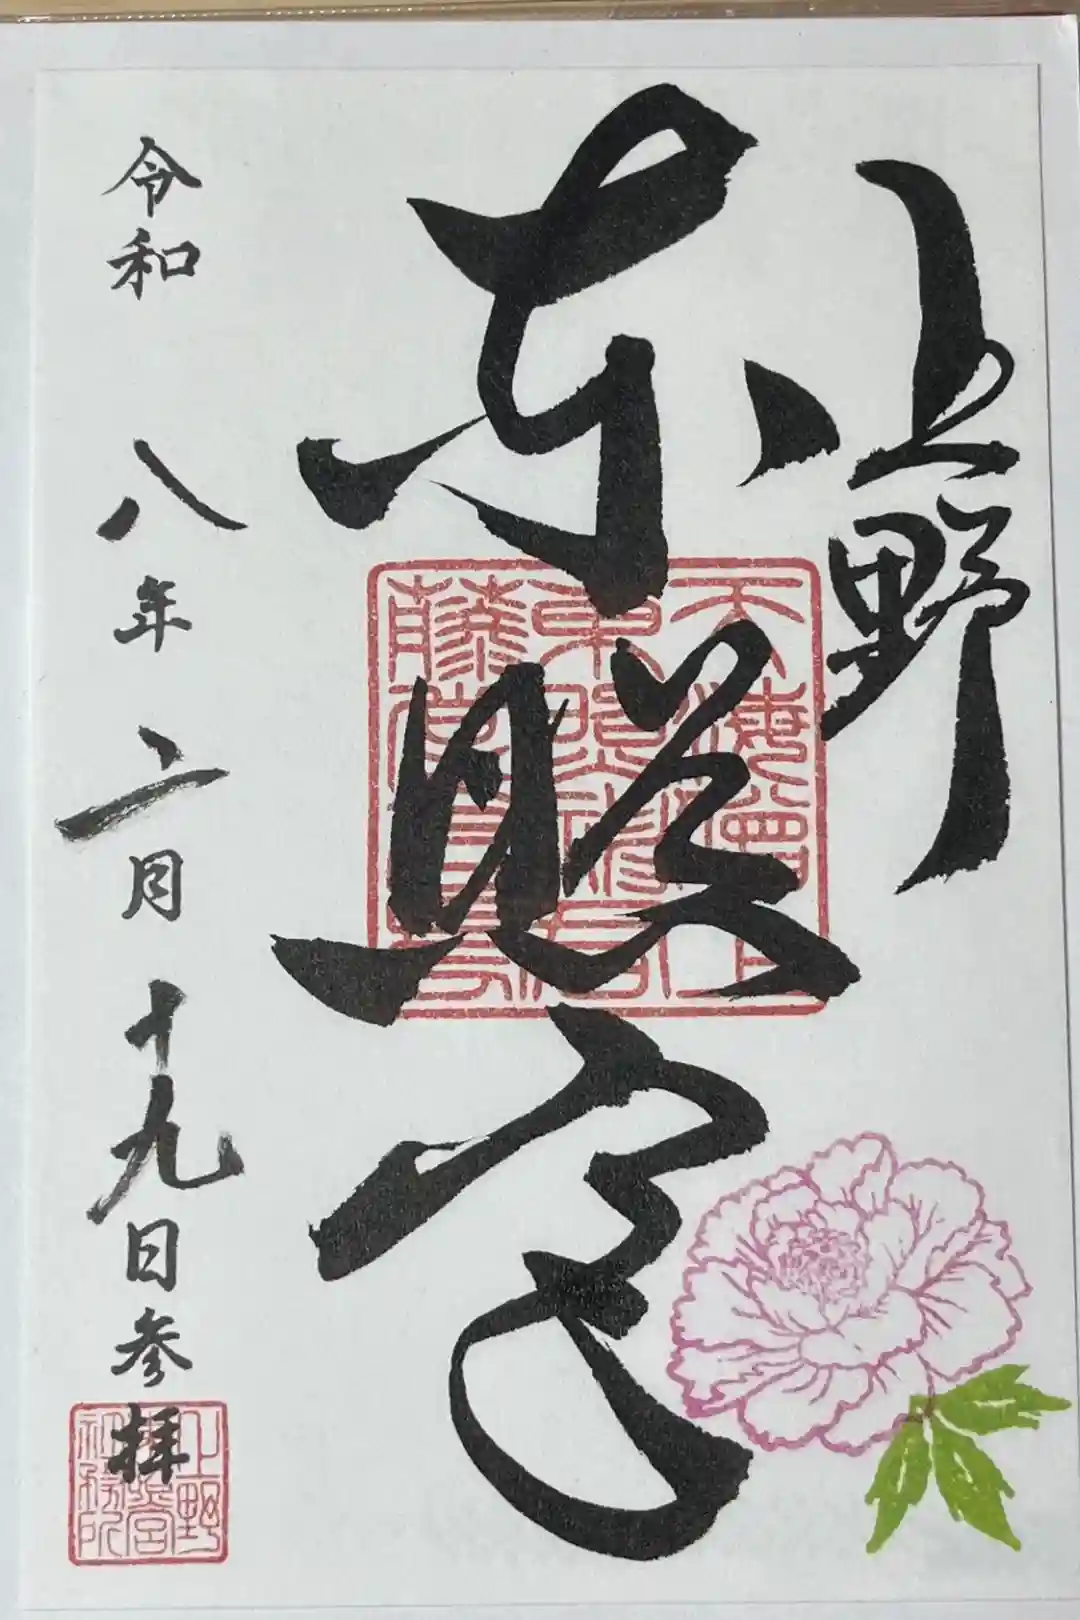 上野
東照宮
令和八年二月十九日参拝
天海僧正
東照神君
藤原高虎
上野
東照宮
社務所